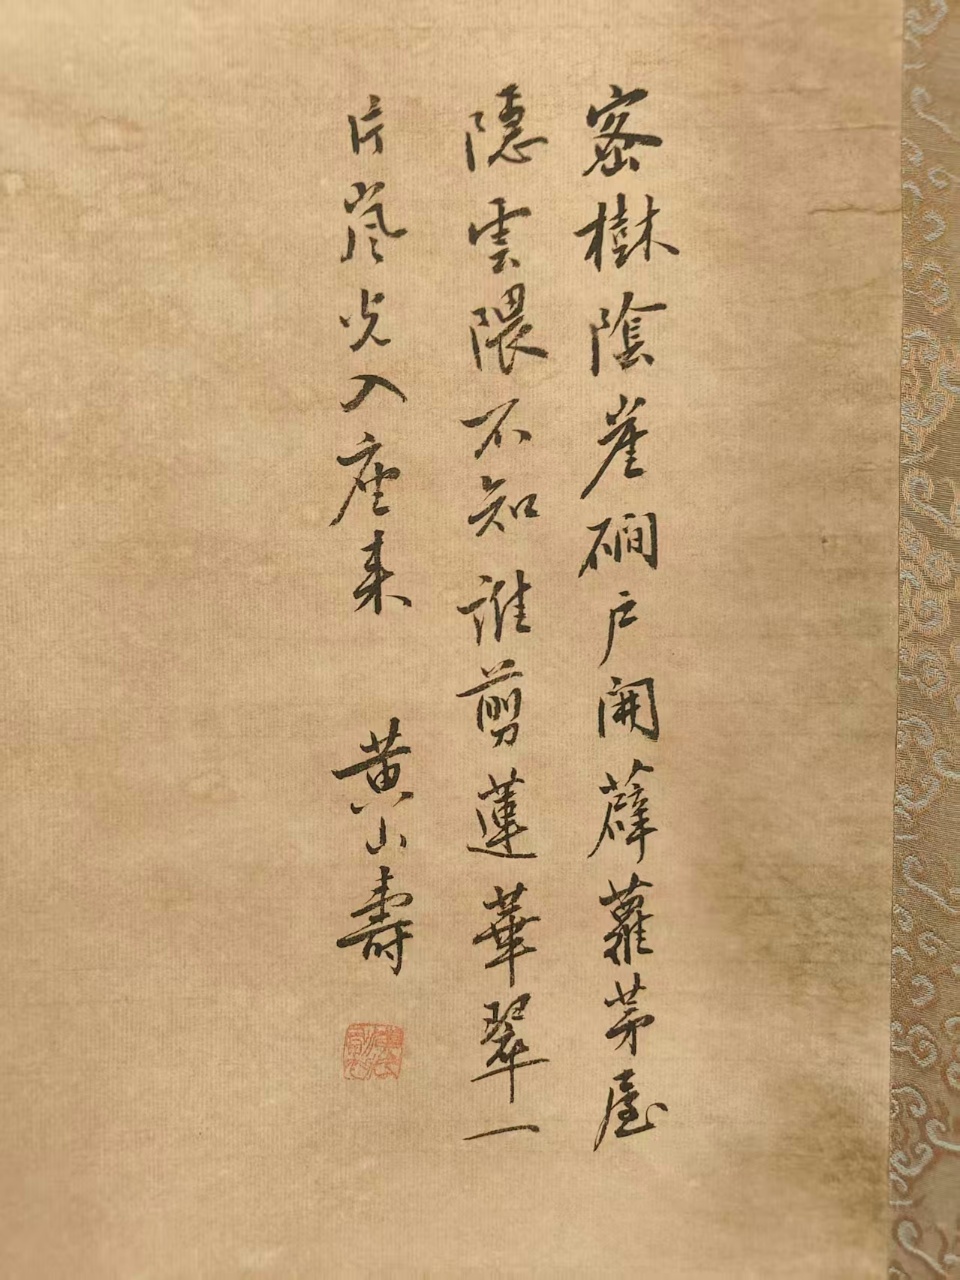 密樹陰崖磵戶開薜蘿茅屋
隱雲隈不知誰剪蓮華翠一
片嵐光入座来
黄山壽